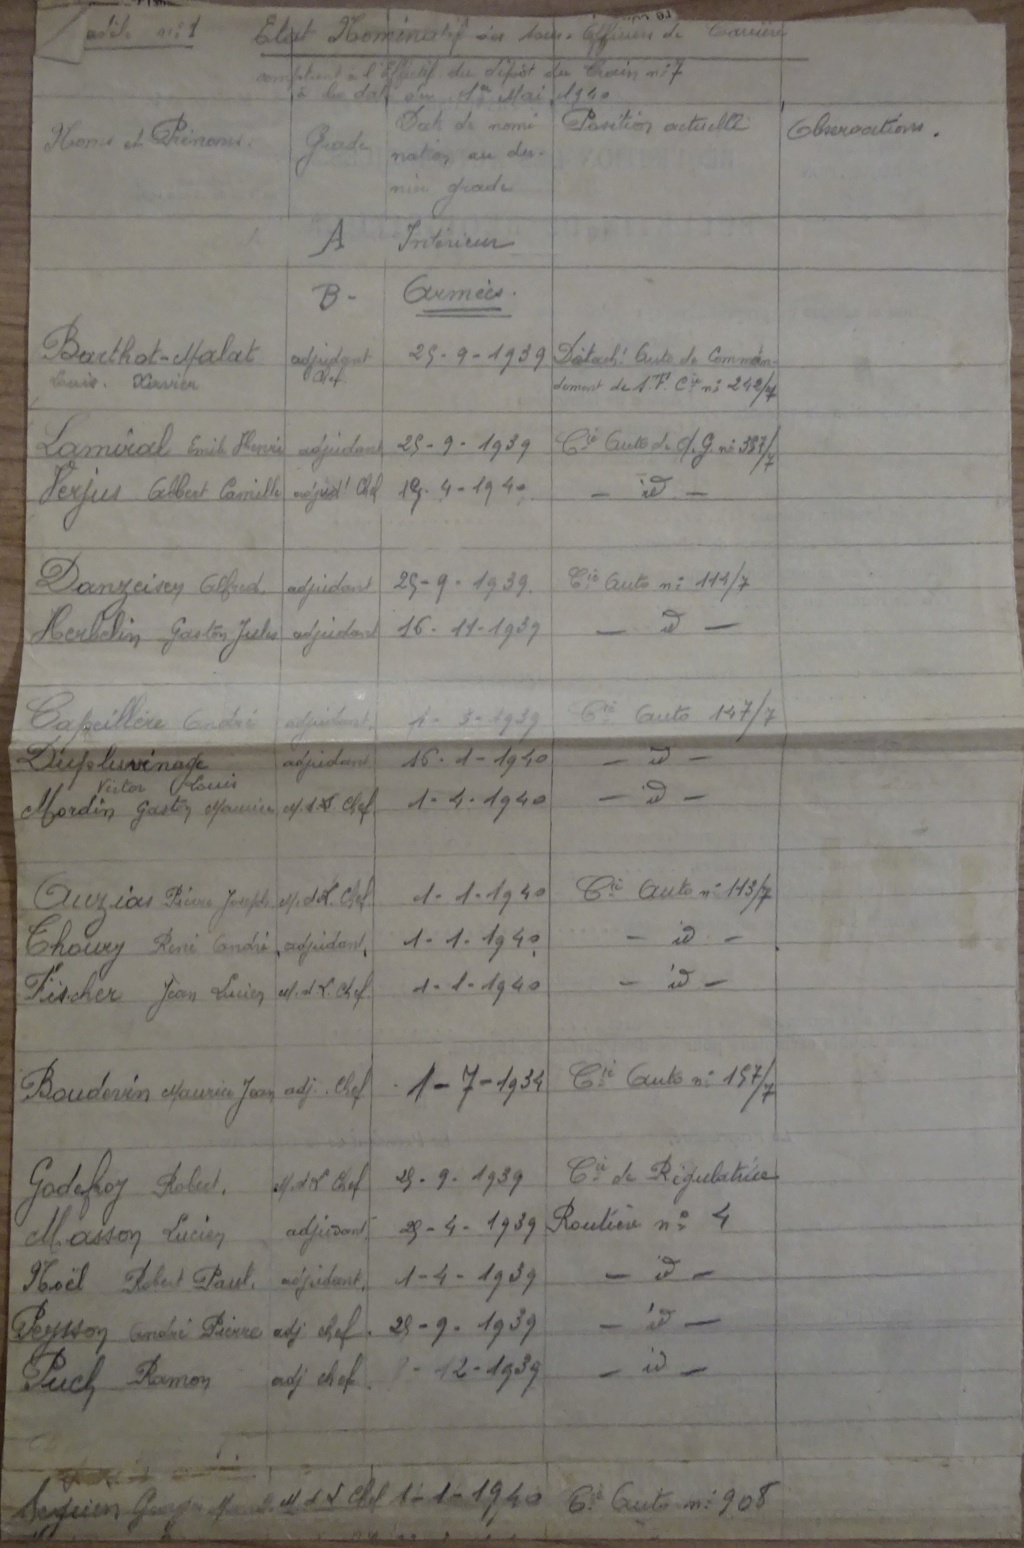 n: 1
Etat Nominatif des Sous-Officiers de Carrière
comptant à l'Effectif du dépôt du Train n: 7
à la date du 1er Mai 1940
Noms et Prénoms. Grade Date de nomi Position actuelle Observations.
nation au der-
nier grade
A Intérieur
B- Armées.
Barthot-Malat adjudant 25-9-1939 Détach: Auto de Comman-
Louis. Xavier Chef dement de Cie n: 242/7
Lamiral Emile Henri adjudant 25-9-1939 Cie Auto de q.g. n: 387/7
Verjus Albert Camille adjud! Chef 15-4-1940 - id -
Danzeisen Alfred adjudant 25-9-1939. Cie Auto n: 111/7
Herbelin Gaston Jules adjudant 16-11-1939 - id -
Capeillère André adjudant. 1-3-1939 Cie Auto 147/7
Dupluvinage adjudant 16-1-1940 - id -
Victor Louis
Mordin Gaston Maurice M.d.L Chef 1-4-1940 - id -
Auzias Pierre Joseph M.d.L. Chef 1-1-1940 Cie Auto n: 113/7
Thoury René André adjudant. 1-1-1940 - id -
Fischer Jean Lucien M.d.L. Chef. 1-1-1940 - id -
Boudevin Maurice Jean adj. Chef 1-7-1934 Cie Auto n: 157/7
Godefroy Robert. M.d.L Chef 25-9-1939 Cie de Régulatrice
Masson Lucien adjudant 25-4-1939 Routière n: 4
Noël Robert Paul. adjudant. 1-4-1939 - id -
Peysson André Pierre adj chef. 25-9-1939 - id -
Puch Ramon adj chef. -12-1939 - id -
Seguin M.d.L Chef 1-1-1940 Cie Auto n: 908